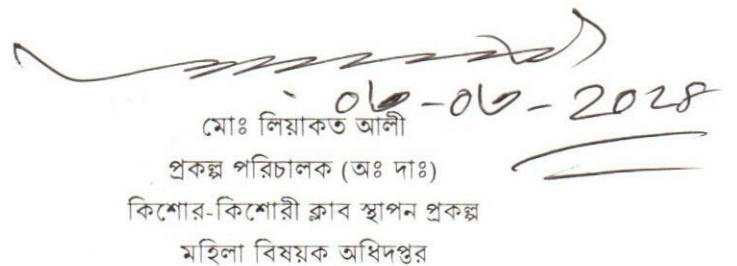 ০৬-০৬-২০২৪
মোঃ লিয়াকত আলী
প্রকল্প পরিচালক (অঃ দাঃ)
কিশোর-কিশোরী ক্লাব স্থাপন প্রকল্প
মহিলা বিষয়ক অধিদপ্তর